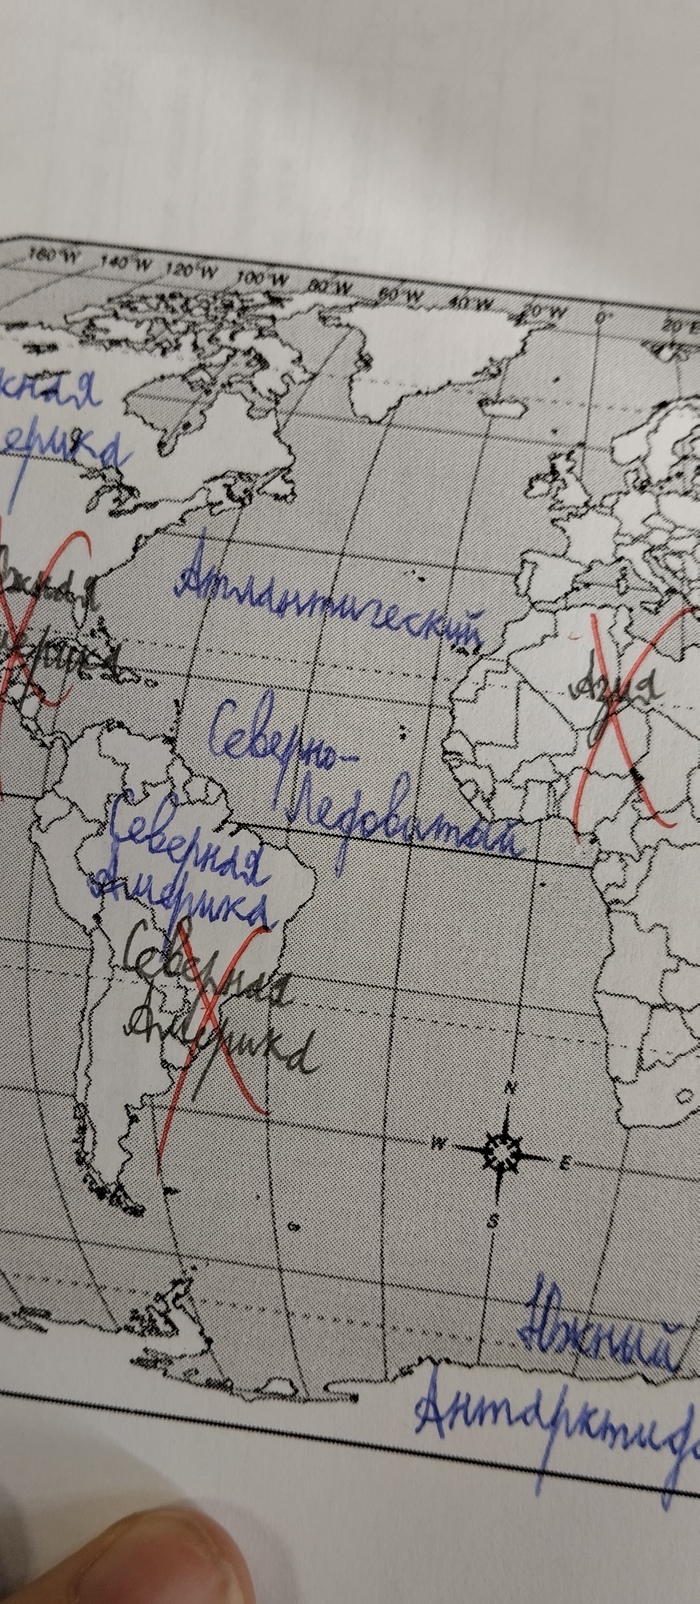 160°W 140°W 120°W 100°W 80°W 60°W 40°W 20°W 0° 20°E
жная
ерика
жная
ерика
Атлантический
Азия
Северно-
Ледовитый
Северная
Америка
Северная
Америка
N
W E
S
Южный
Антарктида